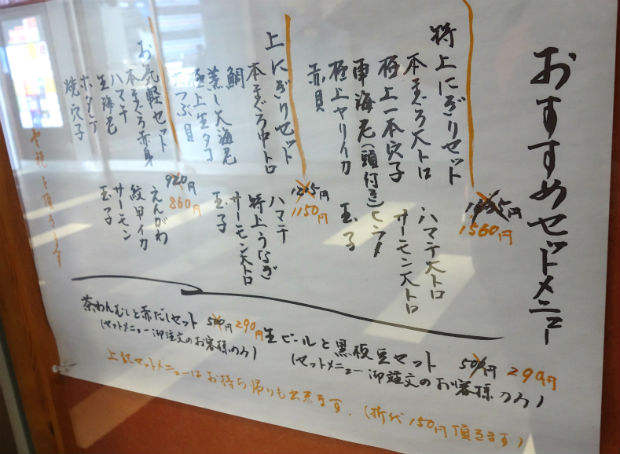 おすすめセットメニュー
特上にぎりセット 1560円
本まぐろ大トロ ハマチ大トロ
極上一本穴子 サーモン大トロ
車海老(頭付き) ヒラメ
極上ヤリイカ 玉子
赤貝
上にぎりセット 1150円
本まぐろ中トロ 特上うなぎ
鯛 ハマチ
蒸し大海老 サーモン大トロ
極上生タコ 玉子
つぶ貝
お気軽セット 920円 860円
本まぐろ赤身 えんがわ
ハマチ 紋甲イカ
生海老 サーモン
ホタテ 玉子
焼穴子
茶わんむしと赤だしセット 500円 290円
(セットメニュー御注文のお客様のみ)
生ビールと黒枝豆セット 500円 299円
(セットメニュー御注文のお客様のみ)
上記セットメニューはお持ち帰りも出来ます。(折代150円頂きます)